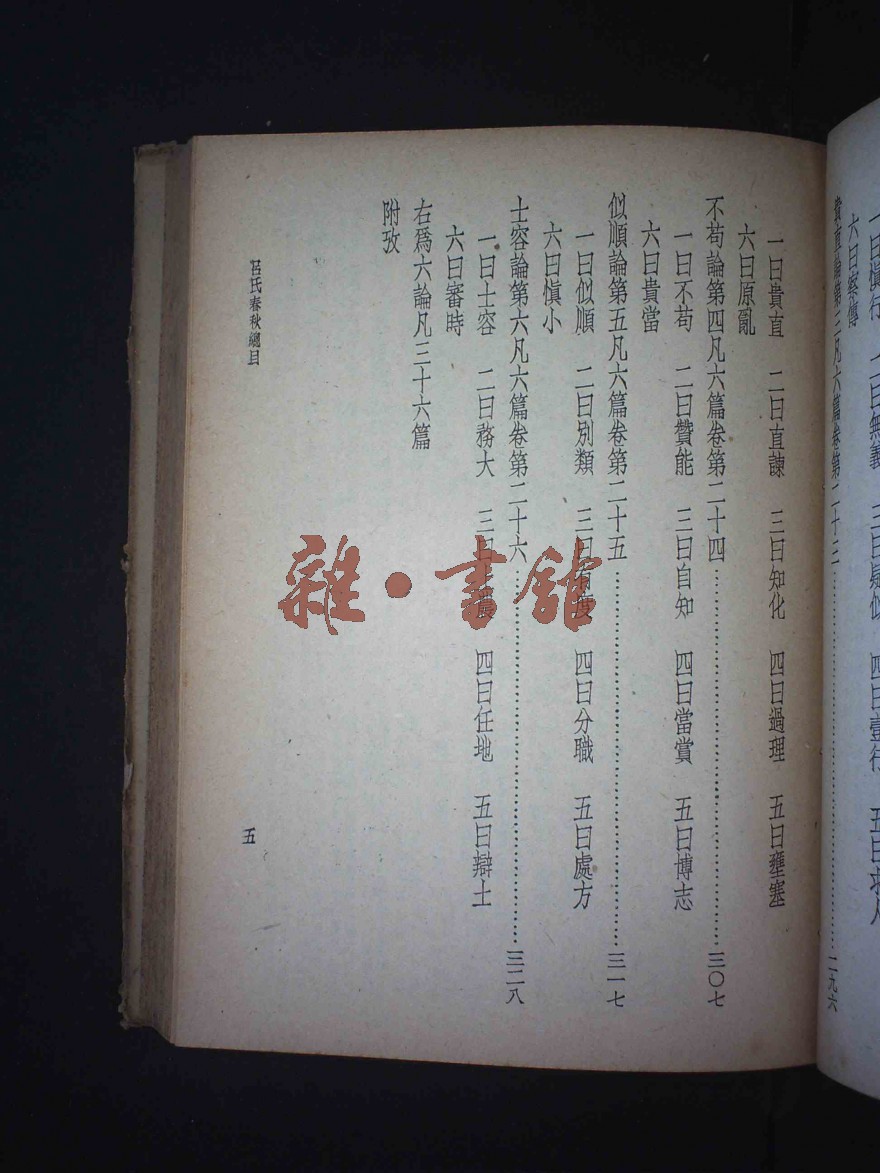 一曰慎行　二曰無義　三曰疑似　四曰壹行　五曰求人
六曰察傳
貴直論第三凡六篇卷第二十三……二九六
一曰貴直　二曰直諫　三曰知化　四曰過理　五曰壅塞
六曰原亂
不苟論第四凡六篇卷第二十四……三〇七
一曰不苟　二曰贊能　三曰自知　四曰當賞　五曰博志
六曰貴當
似順論第五凡六篇卷第二十五……三一七
一曰似順　二曰別類　三曰有度　四曰分職　五曰處方
六曰慎小
士容論第六凡六篇卷第二十六……三二八
一曰士容　二曰務大　三曰　四曰任地　五曰辯士
六曰審時
右爲六論凡三十六篇
附攷
呂氏春秋總目
五
雜·書館